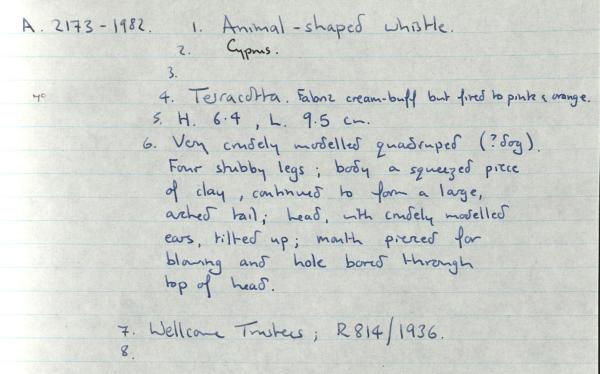 A. 2173-1982. 1. Animal-shaped whistle.
2. Cyprus.
3.
4. Terracotta. Fabric cream-buff but fired to pink & orange.
5. H. 6.4, L. 9.5 cm.
6. Very crudely modelled quadruped (?dog).
Four stubby legs; body a squeezed piece
of clay, continued to form a large,
arched tail; head, with crudely modelled
ears, tilted up; mouth pierced for
blowing and hole bored through
top of head.
7. Wellcome Trustees; R814/1936.
8.